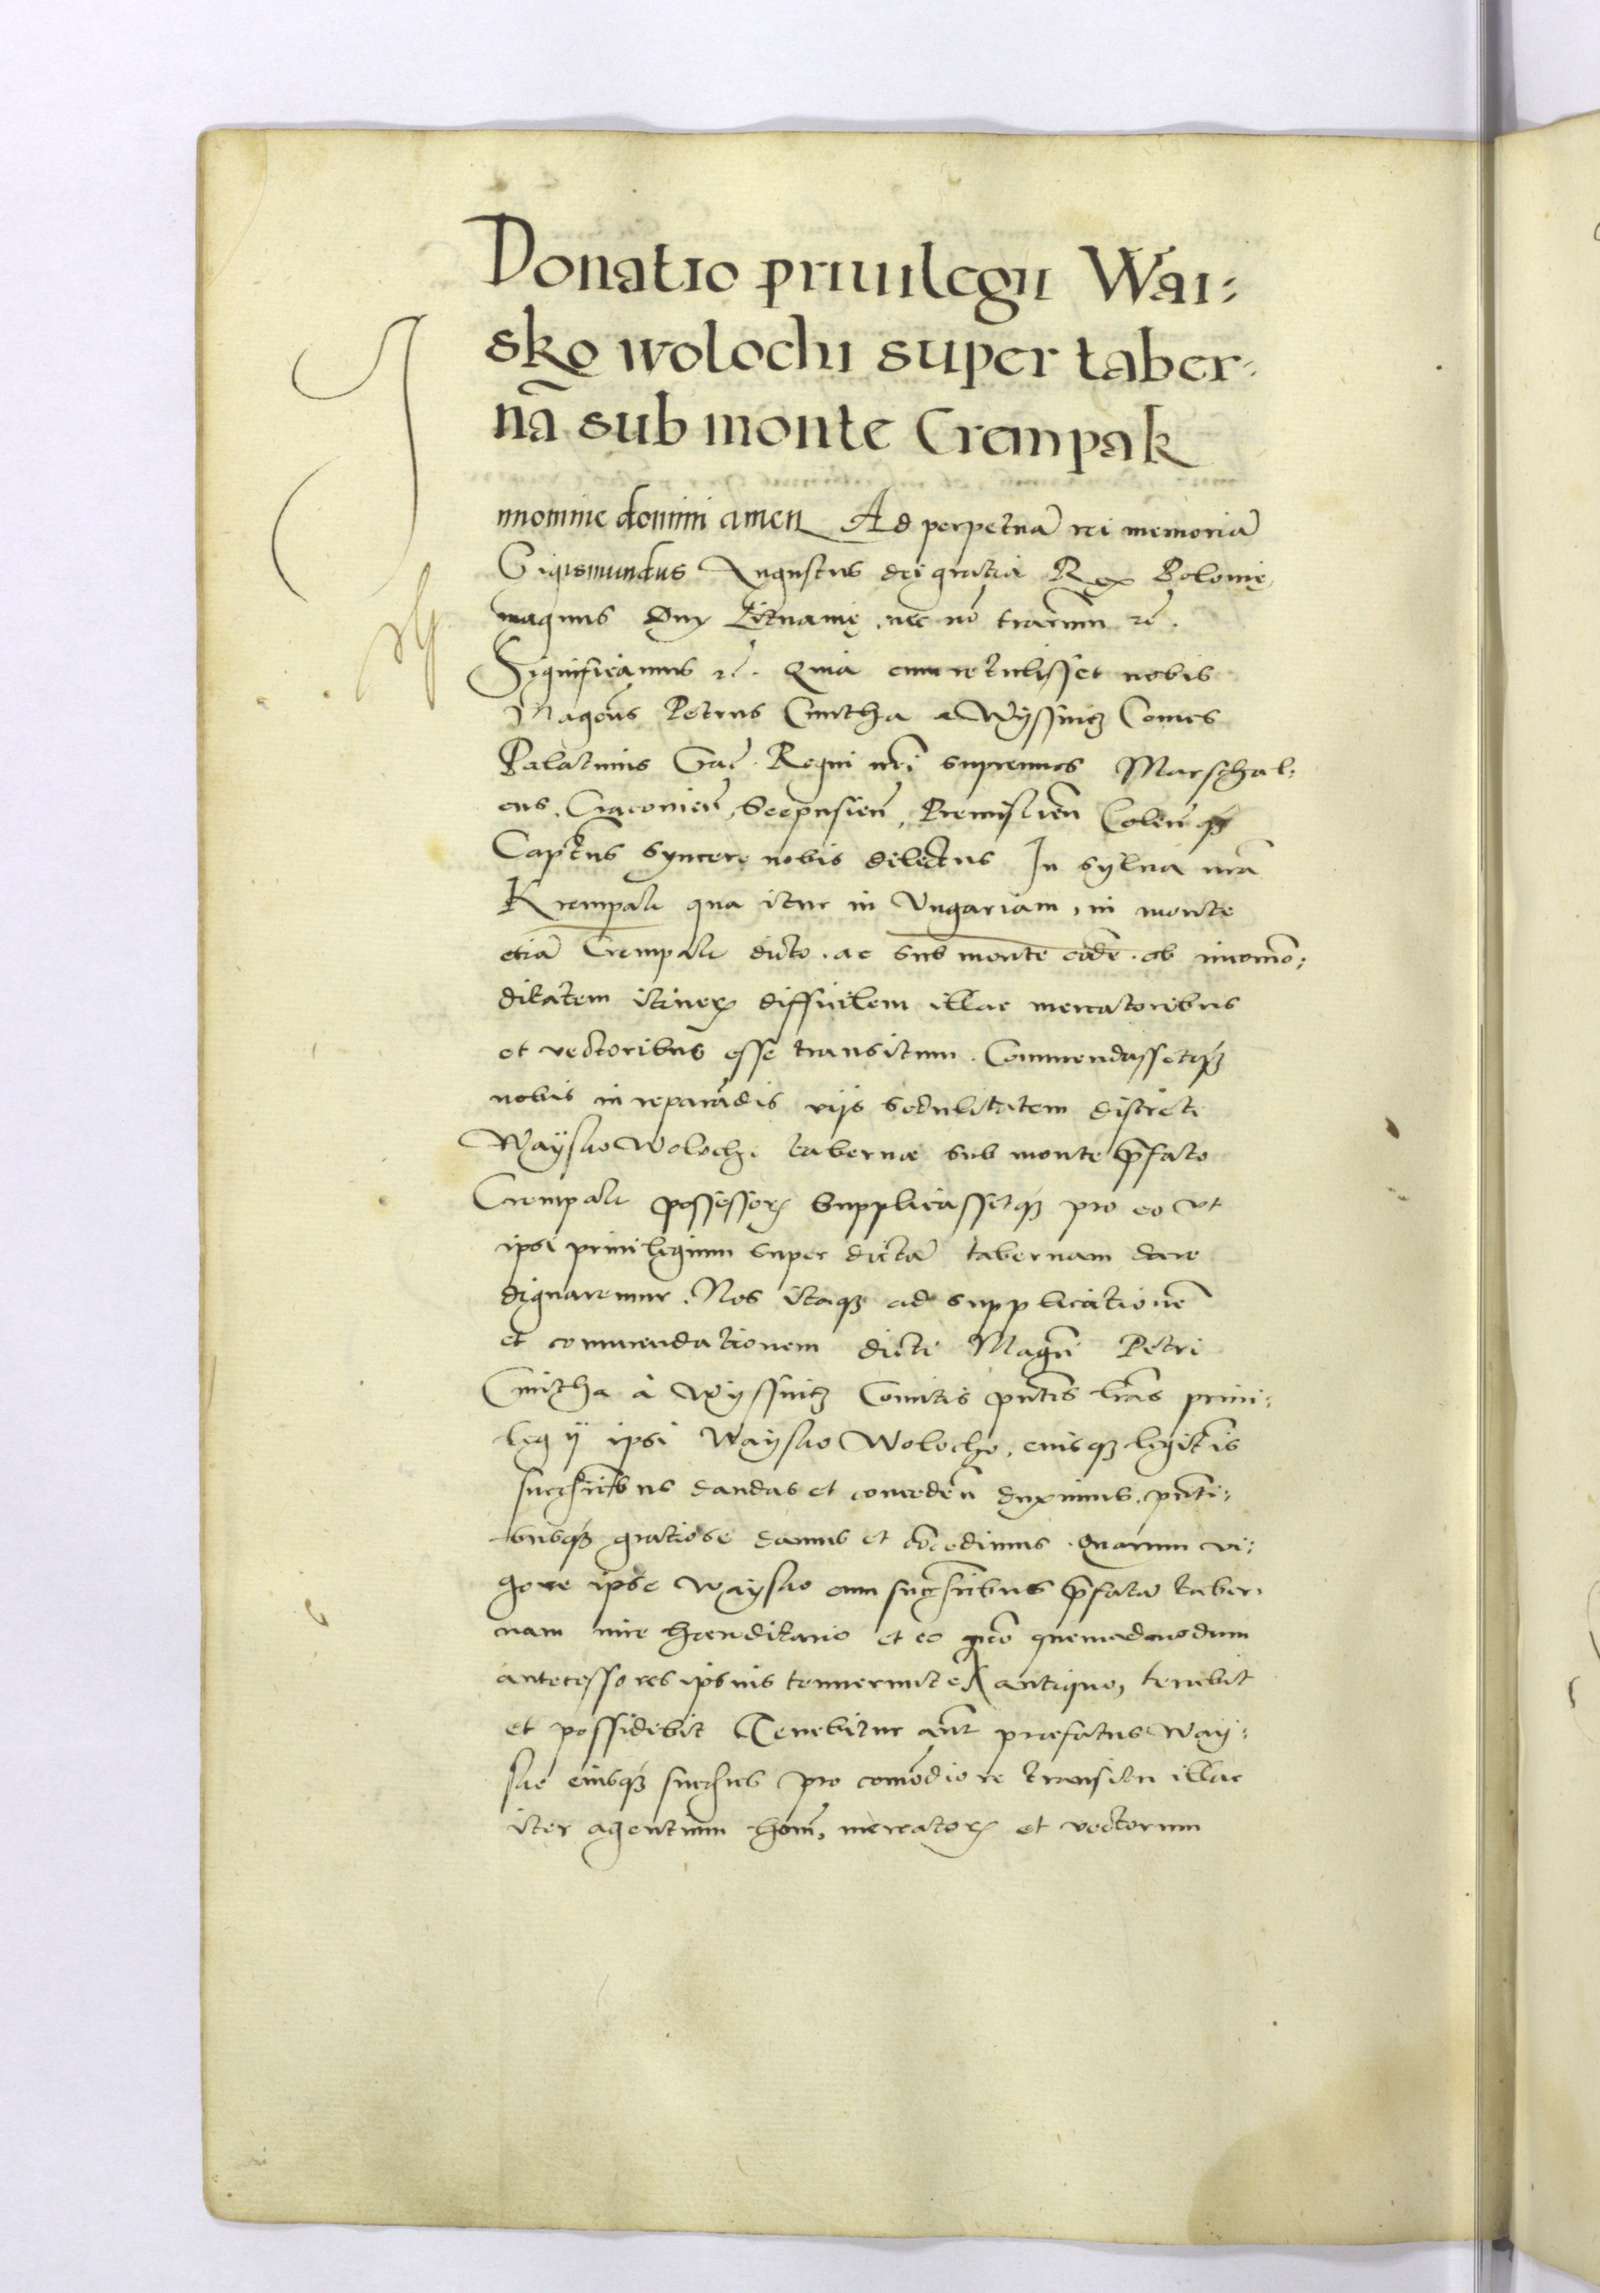 Donatio priuilegii Wai-
sko wolochi super taber-
nã sub monte Crempak
J nnomine domini amen Ad perpetuã rei memoriã
Sigismundus Augustus dei gratia Rex Polonię
magnus Dux Lituanię, nec nõ trarum rc̃.
Significamus rc̃. Quia cum retulisset nobis
Magcus Petrus Cmitha a Wyssnicz Comes
Palatinus Gñ. Regni nri supremus Marschal-
cus, Cracouien, Scepusien, Premislien Colen q3
Captus syncere nobis delectus In sylua nrã
Krempak qua itur in Vngariam, in monte
etiã Crempak dicto. ac sub monte eodẽ. ob incomo-
ditatem itiner diffcilem illac mercatoribus
et vectoribus esse transitum. Commendassetq3
nobis in reparãdis viis sedulitatem discreti
Waysko Wolochi tabernæ sub monte pfato
Crempak possessor supplicassetq3 pro eo vt
ipsi priuilegium super dictã tabernam dare
dignaremur. Nos itaq3 ad supplicationẽ
et commendationem dicti Magci Petri
Cmitha à Wyssnicz Comitis pntes lras priui-
legij ipsi Waysko Wolocho, eiusq3 legitis
succsoribus dandas et conceden duximus, pnti-
busq3 gratiose damus et cõcedimus. Quarum vi-
gore ipse Waysko cum succsoribus pfatã taber-
nam iure hæreditario et eo mõ quemadmodum
antecessores ipsius tenuerunt ex antiquo, tenebit
et possidebit Tenebitur aut præfatus Way-
sko eiusq3 succsores pro comodiore transitu illac
iter agentium hoim, mercator et vectorum